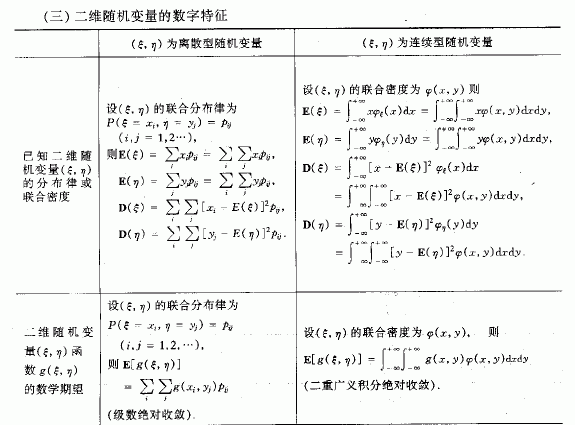 (三) 二维随机变量的数字特征
(ξ, η) 为离散型随机变量
(ξ, η) 为连续型随机变量
已知二维随
机变量(ξ, η)
的分布律或
联合密度
设(ξ, η) 的联合分布律为
P(ξ = x_i, η = y_j) = p_ij
(i, j = 1,2⋯),
则E(ξ) = ∑_i x_i p_ij = ∑_i ∑_j x_i p_ij,
E(η) = ∑_j y_j p_ij = ∑_i ∑_j y_j p_ij,
D(ξ) = ∑_i ∑_j [x_i − E(ξ)]² p_ij,
D(η) = ∑_i ∑_j [y_j − E(η)]² p_ij.
设(ξ, η) 的联合密度为 φ(x, y) 则
E(ξ) = ∫_{-∞}^{+∞} xφ_ξ(x)dx = ∫_{-∞}^{+∞}∫_{-∞}^{+∞} xφ(x, y)dxdy,
E(η) = ∫_{-∞}^{+∞} yφ_η(y)dy = ∫_{-∞}^{+∞}∫_{-∞}^{+∞} yφ(x, y)dxdy,
D(ξ) = ∫_{-∞}^{+∞} [x − E(ξ)]² φ_ξ(x)dx
= ∫_{-∞}^{+∞}∫_{-∞}^{+∞} [x − E(ξ)]²φ(x, y)dxdy,
D(η) = ∫_{-∞}^{+∞} [y − E(η)]²φ_η(y)dy
= ∫_{-∞}^{+∞}∫_{-∞}^{+∞} [y − E(η)]²φ(x, y)dxdy.
二维随机变
量(ξ, η) 函
数 g(ξ, η)
的数学期望
设(ξ, η) 的联合分布律为
P(ξ = x_i, η = y_j) = p_ij
(i, j = 1,2,⋯),
则 E[g(ξ, η)]
= ∑_i ∑_j g(x_i, y_j)p_ij
(级数绝对收敛).
设(ξ, η) 的联合密度为 φ(x, y), 则
E[g(ξ, η)] = ∫_{-∞}^{+∞}∫_{-∞}^{+∞} g(x, y)φ(x, y)dxdy
(二重广义积分绝对收敛).